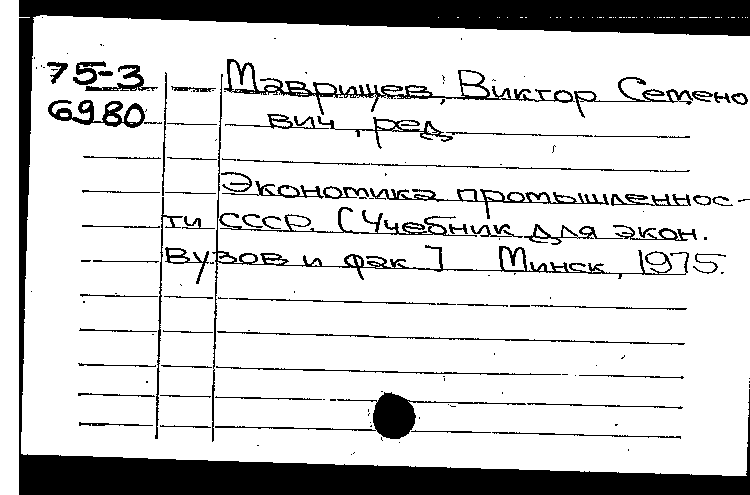 75-3 Маврищев, Виктор Семено
6980 вич, ред.
Экономика промышленнос-
ти СССР. [Учебник для экон.
вузов и фак.] Минск, 1975.